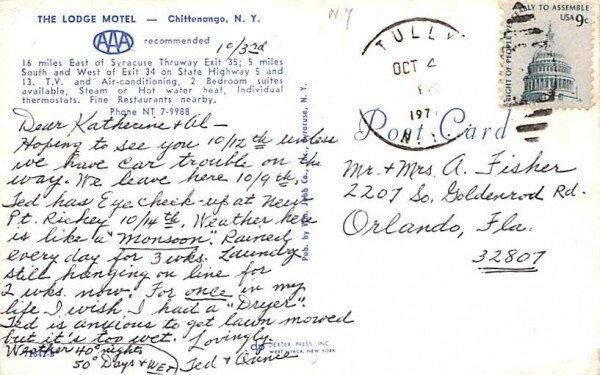 THE LODGE MOTEL — Chittenango, N. Y.
AAA recommended
16 miles East of Syracuse Thruway Exit 35; 5 miles
South and West of Exit 34 on State Highway 5 and
13. T.V. and Air-conditioning, 2 Bedroom suites
available, Steam or Hot water heat, Individual
thermostats. Fine Restaurants nearby.
Phone NT 7-9988
10/3rd
Dear Katherine & Al —
Hoping to see you 10/12th unless
we have car trouble on the
way. We leave here 10/9th.
Ted has Eye check-up at New
Pt. Richey 10/14th. Weather here
is like a "Monsoon". Rained
every day for 3 wks. Laundry
still hanging on line for
2 wks. now. For once in my
life I wish I had a "Dryer".
Ted is anxious to get lawn mowed
but it's too wet. Lovingly.
Weather 40° nights
50° Days & WET
Ted &
72642-B
Pub. by Wm. Jubb Co., Inc., Syracuse, N. Y.
DEXTER PRESS, INC.
WEST NYACK, NEW YORK
N.Y
TULLY
OCT 4
197
N.
LY TO ASSEMBLE
USA 9c
RIGHT OF PEOPLE
Post Card
Mr. & Mrs. A. Fisher
2207 So. Goldenrod Rd.
Orlando, Fla.
32807